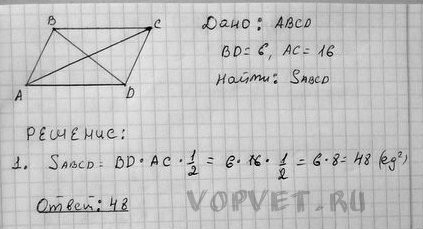 B
C
A
D
Дано: ABCD
BD = 6, AC = 16
Найти: SABCD
РЕШЕНИЕ:
1. SABCD = BD · AC · 1/2 = 6 · 16 · 1/2 = 6 · 8 = 48 (eg²)
Ответ: 48
VOPVET.RU